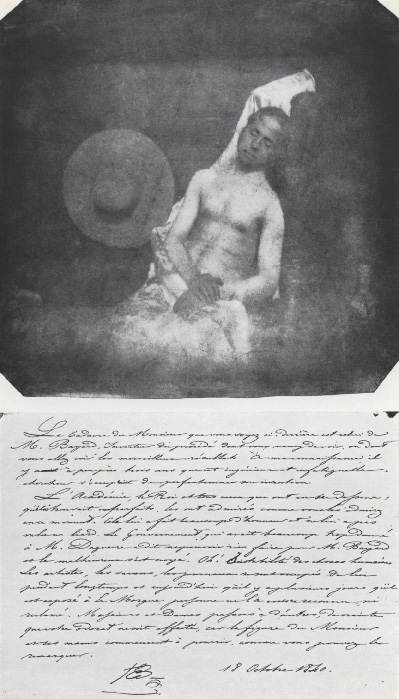 Le cadavre du Monsieur que vous voyez ci-derrière est celui de
M. Bayard, inventeur du procédé dont vous venez de voir, ou dont
vous allez voir les merveilleux résultats. A ma connaissance, il
y a à peu près trois ans que cet ingénieux et infatigable
chercheur s'occupait de perfectionner son invention.
L'Académie, le Roi et tous ceux qui ont vu ses dessins,
imparfaits, les ont admirés comme vous les admirez
en ce moment. Cela lui a fait beaucoup d'honneur et ne lui a pas
valu un liard. Le Gouvernement, qui avait beaucoup trop donné
à M. Daguerre a dit ne pouvoir rien faire pour M. Bayard
et le malheureux s'est noyé. Oh! instabilité des choses humaines
Les artistes, les savans, les journaux se sont occupés de lui
pendant longtemps et aujourd'hui qu'il y a plusieurs jours qu'il
est exposé à la Morgue personne ne l'a encore reconnu, ni
réclamé. Messieurs et Dames, passons à d'autres, de crainte
que votre odorat ne soit affecté, car la figure du Monsieur
et ses mains commencent à pourrir, comme vous pouvez le
remarquer.
18 Octobre 1840.